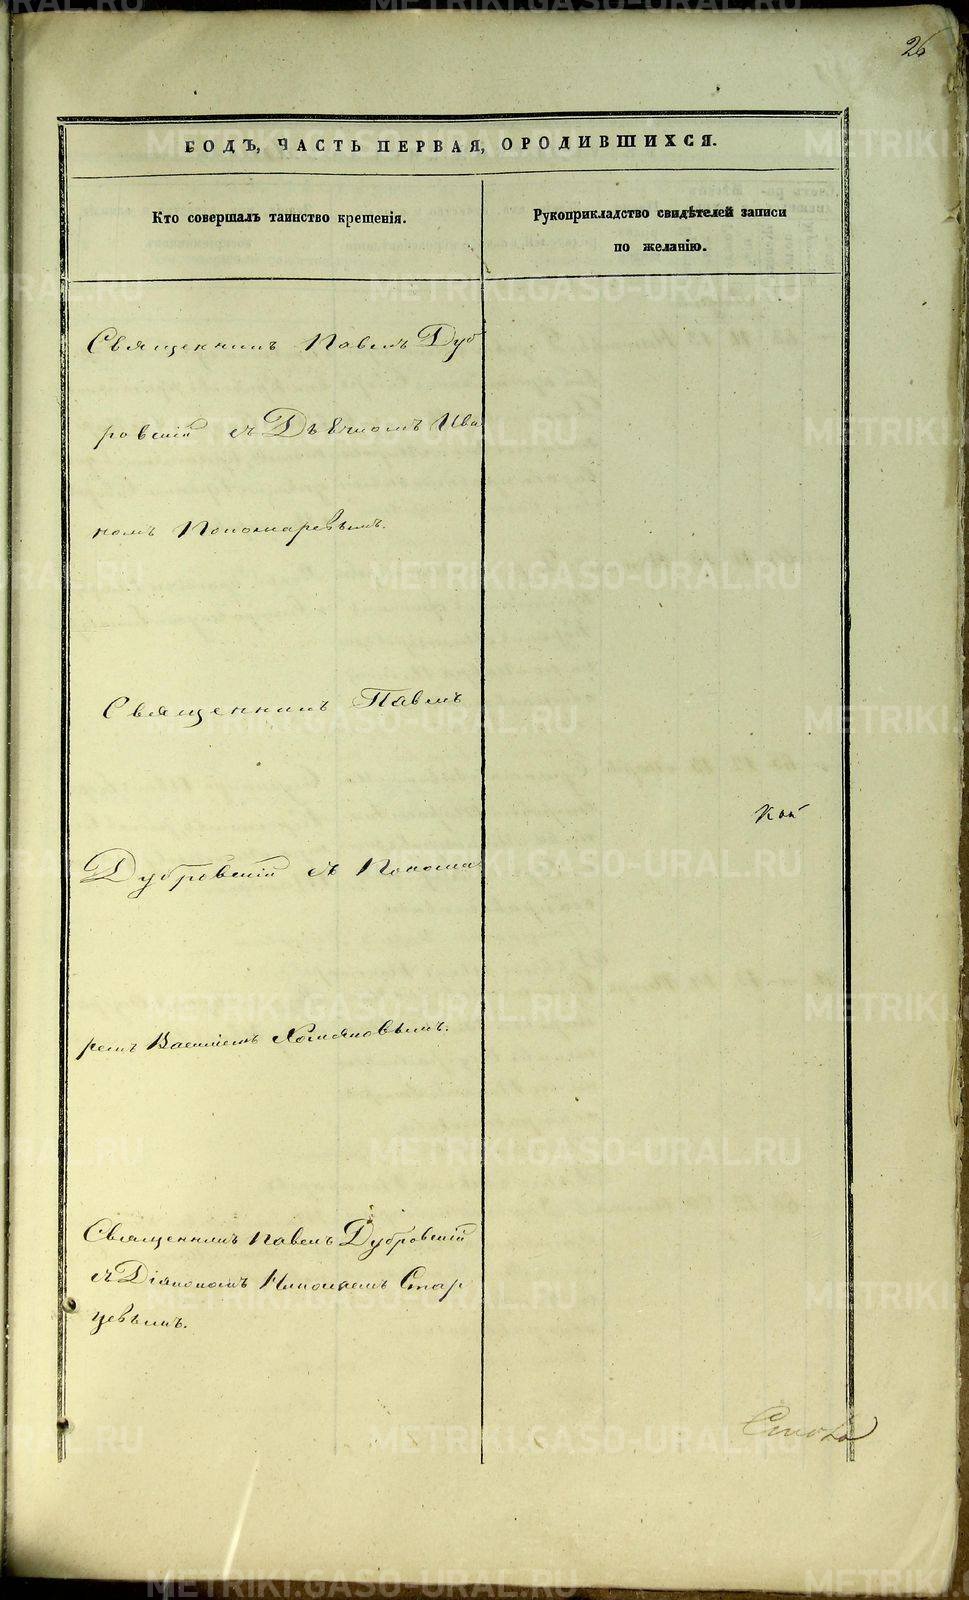 26
ГОДЪ, ЧАСТЬ ПЕРВАЯ, О РОДИВШИХСЯ.
Кто совершалъ таинство крещенія.
Рукоприкладство свидѣтелей записи
по желанію.
Священникъ Павелъ Дуб
ровскій съ Дьячкомъ Ива
номъ Пономаревымъ.
Священникъ Павелъ
Дубровскій съ Понома
ремъ Василіемъ Хомяковымъ.
Священникъ Павелъ Дубровскій
съ Діакономъ Николаемъ Стар
цевымъ.
METRIKI.GASO-URAL.RU